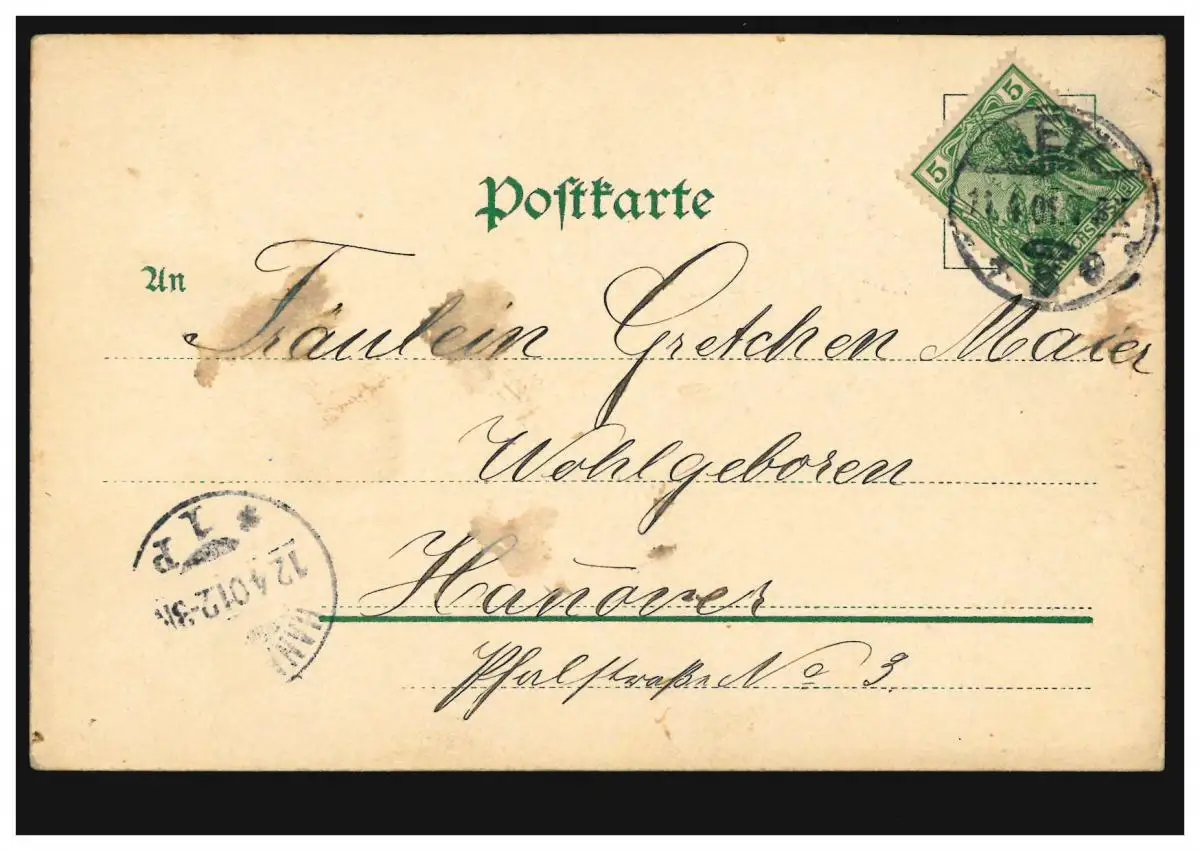 5 5
Postkarte
An
Fräulein Gretchen Maier
Wohlgeboren
Hanover
Pfalstraße No 3.
* 1 P
12 4 01 2-3N
HAN